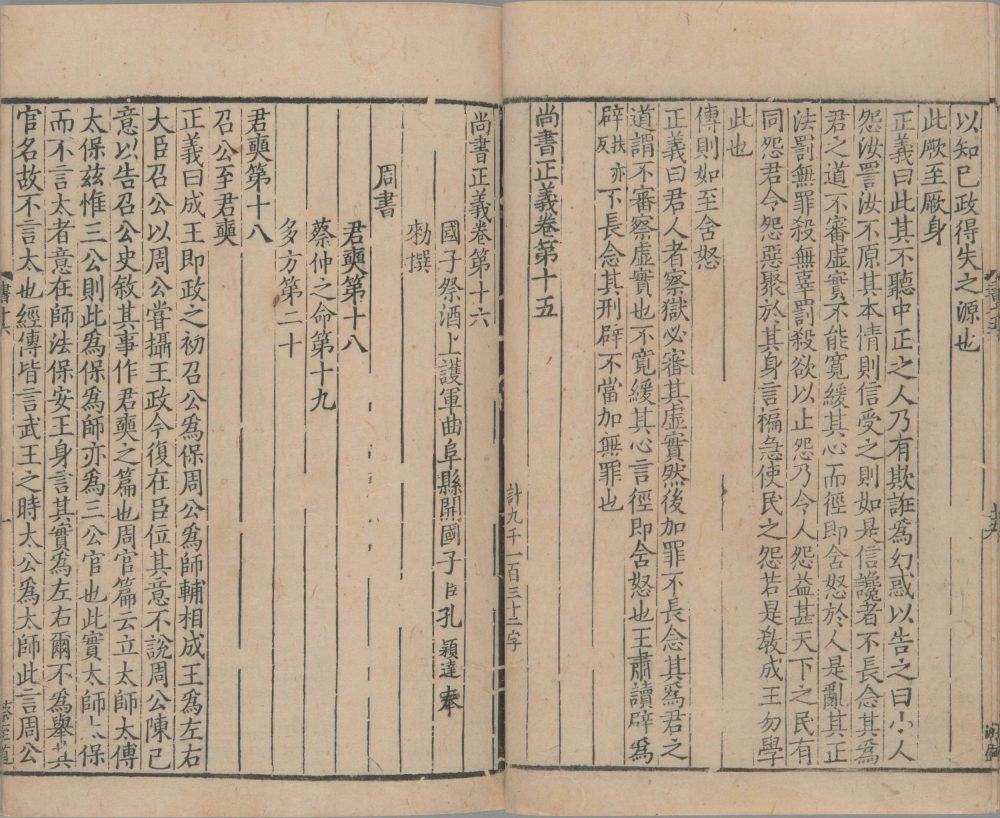 以知已政得失之源也
此厥至厥身
正義曰此其不聽中正之人乃有欺誑爲幻惑以告之曰小人
怨汝詈汝不原其本情則信受之則如是信讒者不長念其爲
君之道不審虛實不能寬緩其心而徑即舍怒於人是亂其正
法罰無罪殺無辜罰殺欲以止怨乃令人怨益甚天下之民有
同怨君令怨惡聚於其身言褊急使民之怨若是教成王勿學
此也
傳則如至舍怒
正義曰君人者察獄必審其虛實然後加罪不長念其爲君之
道謂不審察虛實也不寬緩其心言徑即舍怒也王肅讀辟爲
辟扶亦反不長念其刑辟不當加無罪也
尚書正義卷第十五
計九千一百三十二字
尚書正義卷第十六
國子祭酒上護軍曲阜縣開國子臣孔穎達奉
勑撰
周書
君奭第十八
蔡仲之命第十九
多方第二十
君奭第十八
召公至君奭
正義曰成王即政之初召公爲保周公爲師輔相成王爲左右
大臣召公以周公嘗攝王政今復在臣位其意不說周公陳己
意以告召公史敘其事作君奭之篇也周官篇云立太師太傅
太保茲惟三公則此爲保爲師亦爲三公官也此實太師太保
而不言太者意在師法保安王身言其實爲左右爾不爲舉其
官名故不言太也經傳皆言武王之時太公爲太師此言周公
書十六